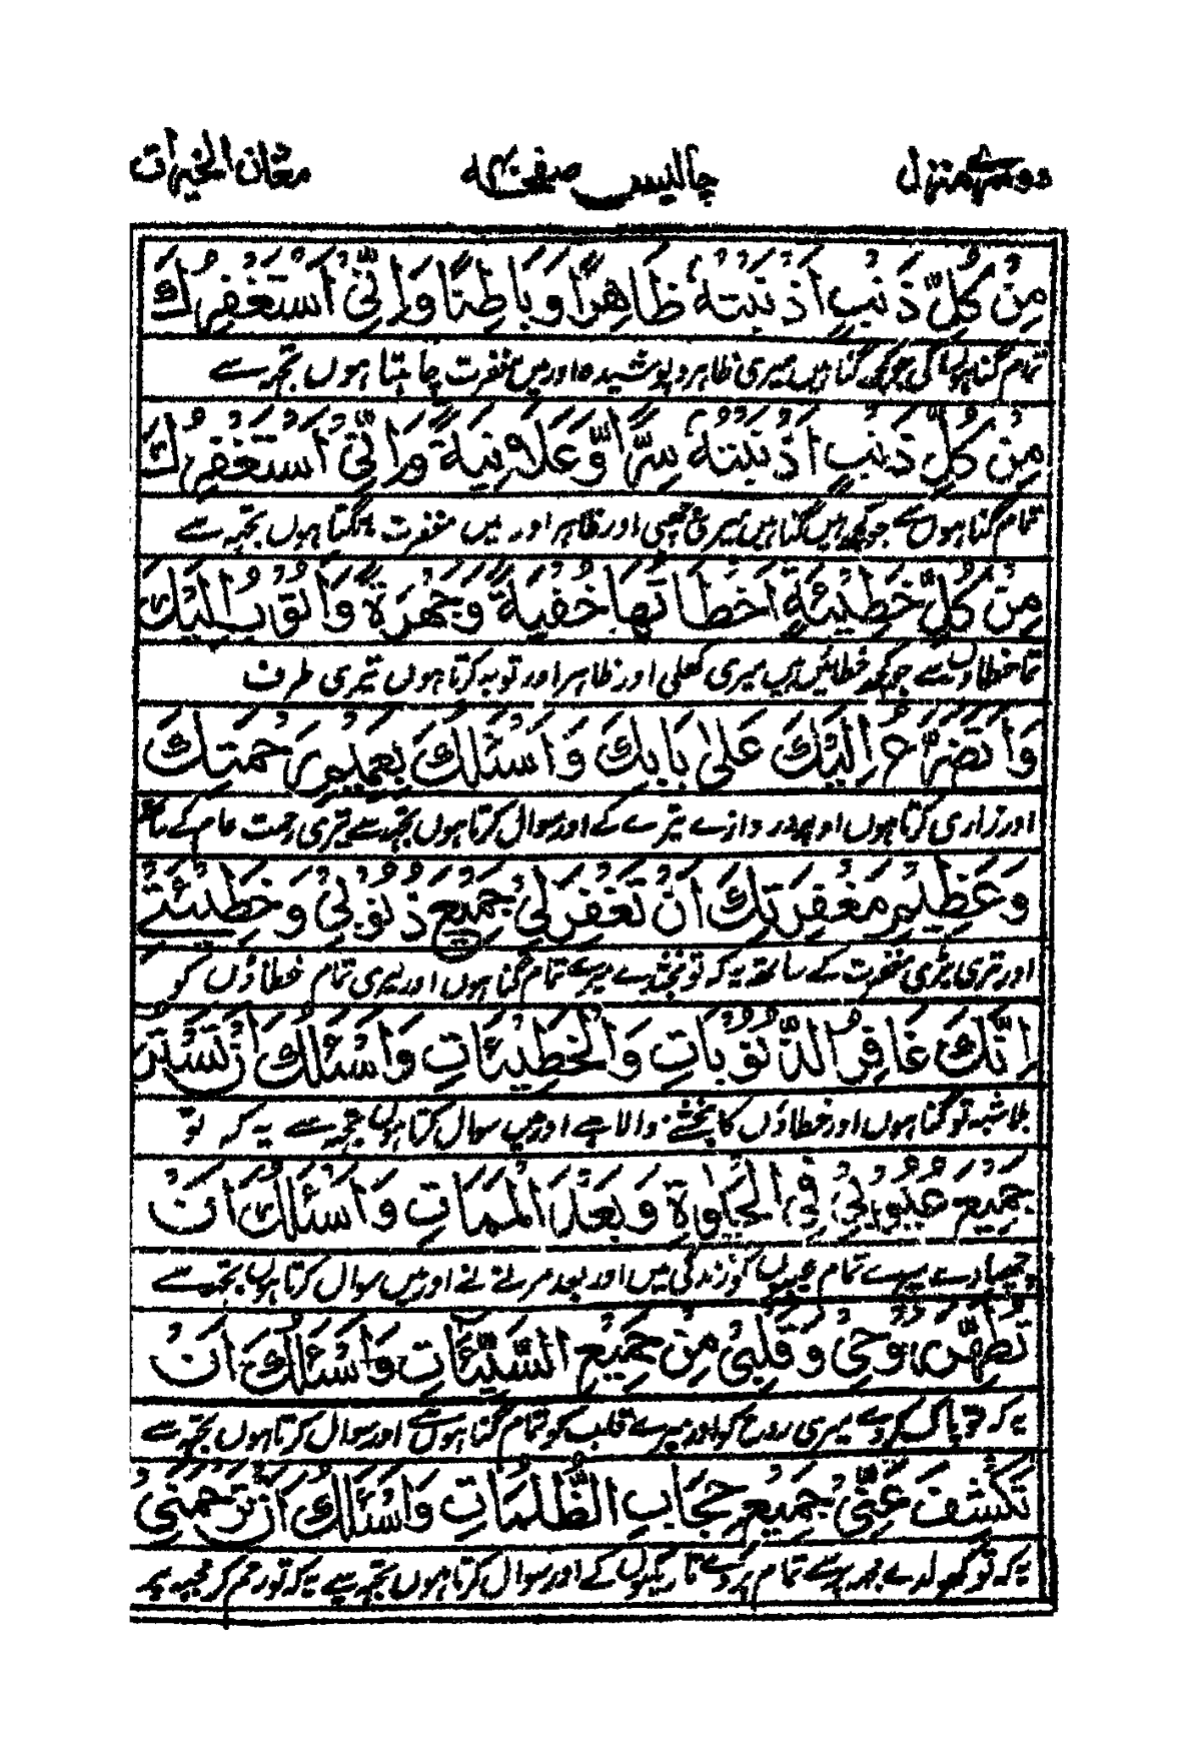 دوسری منزل چالیس صفحہ ۴۰ معان الخیرات
مِنْ كُلِّ ذَنْبٍ اَذْنَبْتُهٗ ظَاهِرًا وَبَاطِنًا وَاِنِّیْ اَسْتَغْفِرُكَ
تمام گناہوں کی جو کچھ گناہ ہیں میری ظاہر و پوشیدہ اور میں مغفرت چاہتا ہوں تجھ سے
مِنْ كُلِّ ذَنْبٍ اَذْنَبْتُهٗ سِرًّا وَّعَلَانِيَةً وَاِنِّیْ اَسْتَغْفِرُكَ
تمام گناہوں سے جو کچھ ہیں گناہیں میری چھپی اور ظاہر اور میں مغفرت مانگتا ہوں تجھ سے
مِنْ كُلِّ خَطِيْئَةٍ اَخْطَاتُهَا خُفْيَةً وَّجَهْرَةً وَاَتُوْبُ اِلَيْكَ
تمام خطاؤں سے جو کچھ خطائیں ہیں میری کھلی اور ظاہر اور توبہ کرتا ہوں تیری طرف
وَاَتَضَرَّعُ اِلَيْكَ عَلٰی بَابِكَ وَاَسْئَلُكَ بِعَمِيْمِ رَحْمَتِكَ
اور زاری کرتا ہوں اوپر دروازے تیرے کے اور سوال کرتا ہوں تجھ سے تیری رحمت عام کے ساتھ
وَعَظِيْمِ مَغْفِرَتِكَ اَنْ تَغْفِرَ لِیْ جَمِيْعَ ذُنُوْبِیْ وَخَطِيْئَتِیْ
اور تیری بڑی مغفرت کے ساتھ یہ کہ تو بخشدے میرے تمام گناہوں اور میری تمام خطاؤں کو
اِنَّكَ غَافِرُ الذُّنُوْبَاتِ وَالْخَطِيْئَاتِ وَاَسْئَلُكَ اَنْ تَسْتُرَ
بلاشبہ تو گناہوں اور خطاؤں کا بخشنے والا ہے اور میں سوال کرتا ہوں تجھ سے یہ کہ تو
جَمِيْعَ عُيُوْبِیْ فِی الْحَيٰوةِ وَبَعْدَ الْمَمَاتِ وَاَسْئَلُكَ اَنْ
چھپا دے میرے تمام عیبوں کو زندگی میں اور بعد مرنے کے اور میں سوال کرتا ہوں تجھ سے
تُطَهِّرَ رُوْحِیْ وَقَلْبِیْ مِنْ جَمِيْعِ السَّيِّئَاتِ وَاَسْئَلُكَ اَنْ
یہ کہ تو پاک کردے میری روح کو اور میرے قلب کو تمام گناہوں سے اور سوال کرتا ہوں تجھ سے
تَكْشِفَ عَنِّیْ جَمِيْعَ حِجَابِ الظُّلُمَاتِ وَاَسْئَلُكَ اَنْ تَرْحَمَنِیْ
یہ کہ تو کھولدے مجھ سے تمام پردے تاریکیوں کے اور سوال کرتا ہوں تجھ سے یہ کہ تو رحم کر مجھ پر